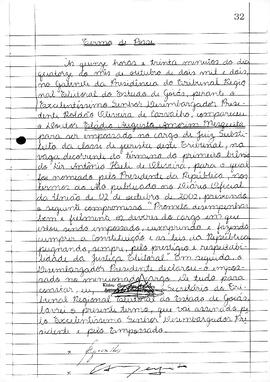 32
Termo de Posse
Às quinze horas e trinta minutos do dia
quatorze do mês de outubro de dois mil e dois,
no Gabinete da Presidência do Tribunal Regio
nal Eleitoral do Estado de Goiás, perante o
Excelentíssimo Senhor Desembargador Presi-
dente Roldão Oliveira de Carvalho, compareceu
o Doutor Eládio Augusto Amorim Mesquita
para ser empossado no cargo de Juiz Substi-
tuto da classe de jurista deste Tribunal, na
vaga decorrente do término do primeiro biênio
do Dr. Antônio de Oliveira, para o qual
foi nomeado pelo Presidente da República, nos
termos do Ato publicado no Diário Oficial
da União de 02 de outubro de 2002, prestando
o seguinte compromisso: "Prometo desempenhar
bem e fielmente os deveres do cargo em que
estou sendo empossado, cumprindo e fazendo
cumprir a Constituição e as leis da República
pugnando, sempre, pelo prestígio e respeitabi-
lidade da Justiça Eleitoral". Em seguida, o
Desembargador Presidente declarou-o empossa-
do no mencionado cargo. De tudo para
constar, eu, Secretário do Tri-
bunal Regional Eleitoral do Estado de Goiás,
lavrei o presente termo, que vai assinado pe-
lo Excelentíssimo Senhor Desembargador Pre-
sidente e pelo Empossado.